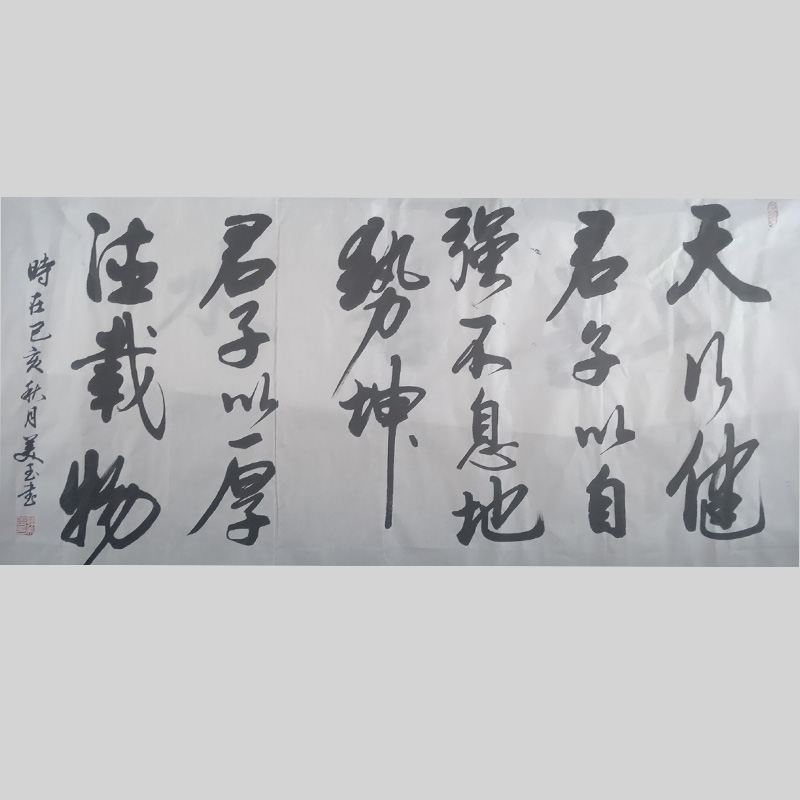 天行健
君子以自
强不息地
勢坤
君子以厚
德載物
時在己亥秋月美玉書